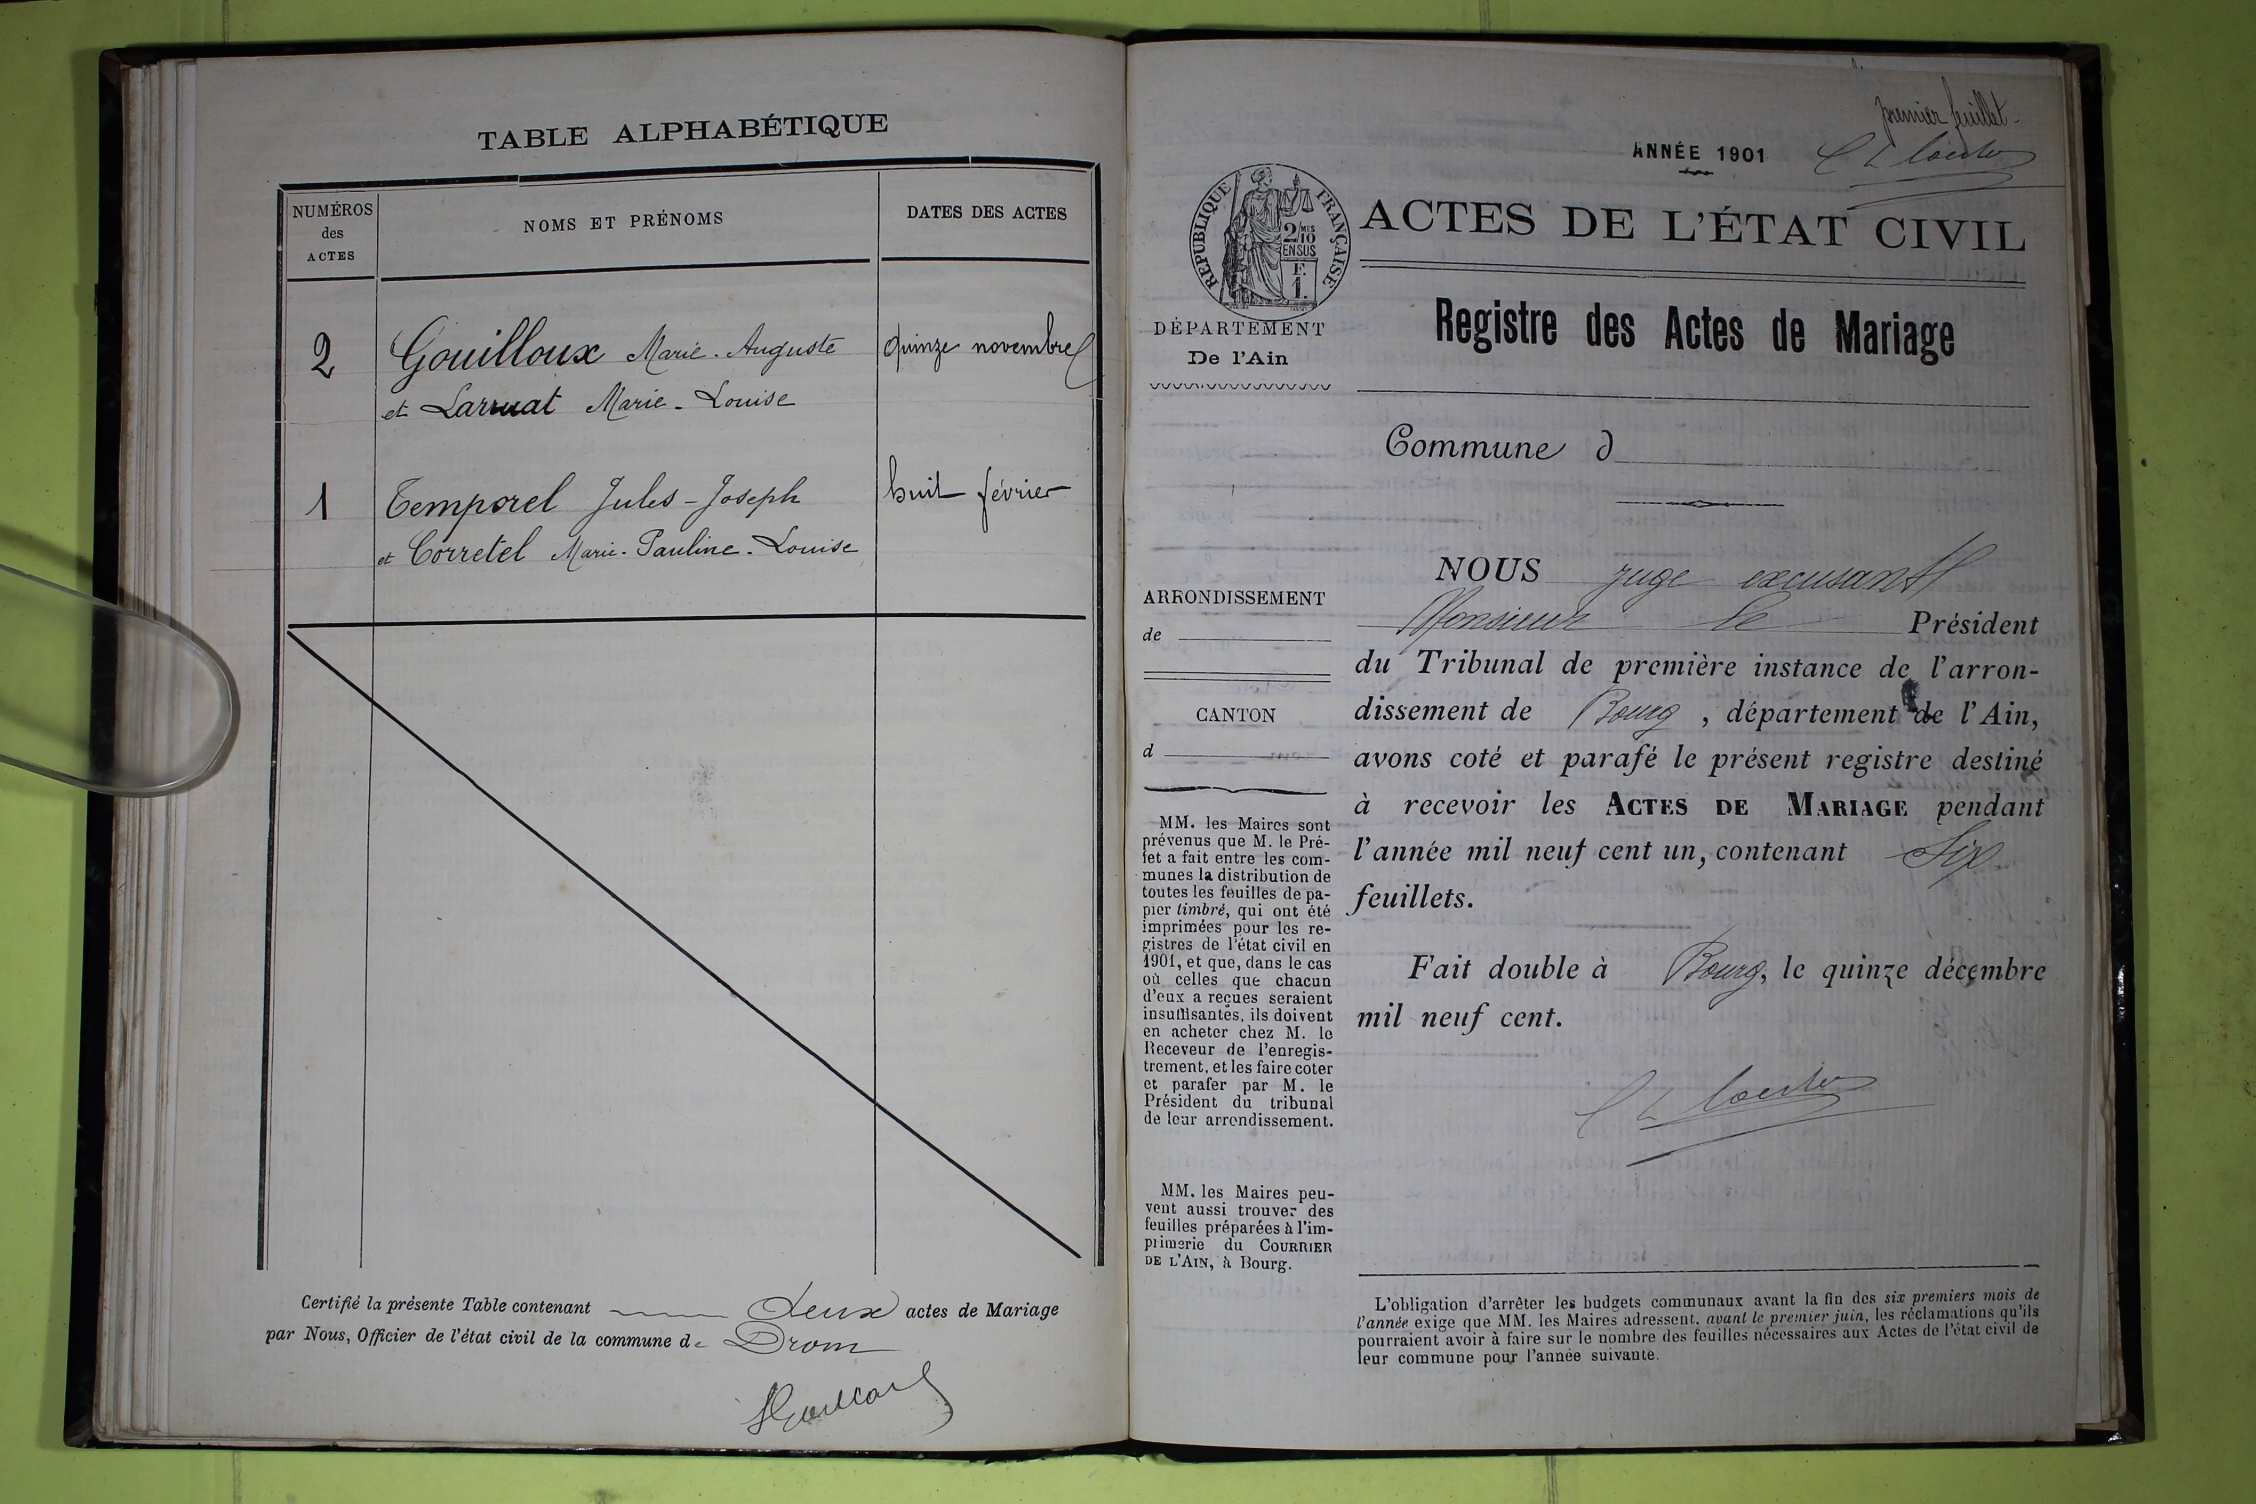 TABLE ALPHABÉTIQUE
NUMÉROS
des
ACTES
NOMS ET PRÉNOMS
DATES DES ACTES
2
Gouilloux Marie-Auguste
quinze novembre
et Larruat Marie-Louise
1
Temporel Jules-Joseph
huit février
et Corretel Marie-Pauline-Louise
Certifié la présente Table contenant deux actes de Mariage
par Nous, Officier de l'état civil de la commune de Drom
premier feuillet
ANNÉE 1901
RÉPUBLIQUE FRANÇAISE
2/10
EN SUS
F.
1.
ACTES DE L'ÉTAT CIVIL
DÉPARTEMENT
De l'Ain
Registre des Actes de Mariage
Commune d
ARRONDISSEMENT
de
CANTON
d
MM. les Maires sont
prévenus que M. le Pré-
fet a fait entre les com-
munes la distribution de
toutes les feuilles de pa-
pier timbré, qui ont été
imprimées pour les re-
gistres de l'état civil en
1901, et que, dans le cas
où celles que chacun
d'eux a reçues seraient
insuffisantes, ils doivent
en acheter chez M. le
Receveur de l'enregis-
trement, et les faire coter
et parafer par M. le
Président du tribunal
de leur arrondissement.
MM. les Maires peu-
vent aussi trouver des
feuilles préparées à l'im-
primerie du COURRIER
DE L'AIN, à Bourg.
NOUS juge excusant
Monsieur le Président
du Tribunal de première instance de l'arron-
dissement de Bourg, département de l'Ain,
avons coté et parafé le présent registre destiné
à recevoir les ACTES DE MARIAGE pendant
l'année mil neuf cent un, contenant Six
feuillets.
Fait double à Bourg, le quinze décembre
mil neuf cent.
L'obligation d'arrêter les budgets communaux avant la fin des six premiers mois de
l'année exige que MM. les Maires adressent, avant le premier juin, les réclamations qu'ils
pourraient avoir à faire sur le nombre des feuilles nécessaires aux Actes de l'état civil de
leur commune pour l'année suivante.